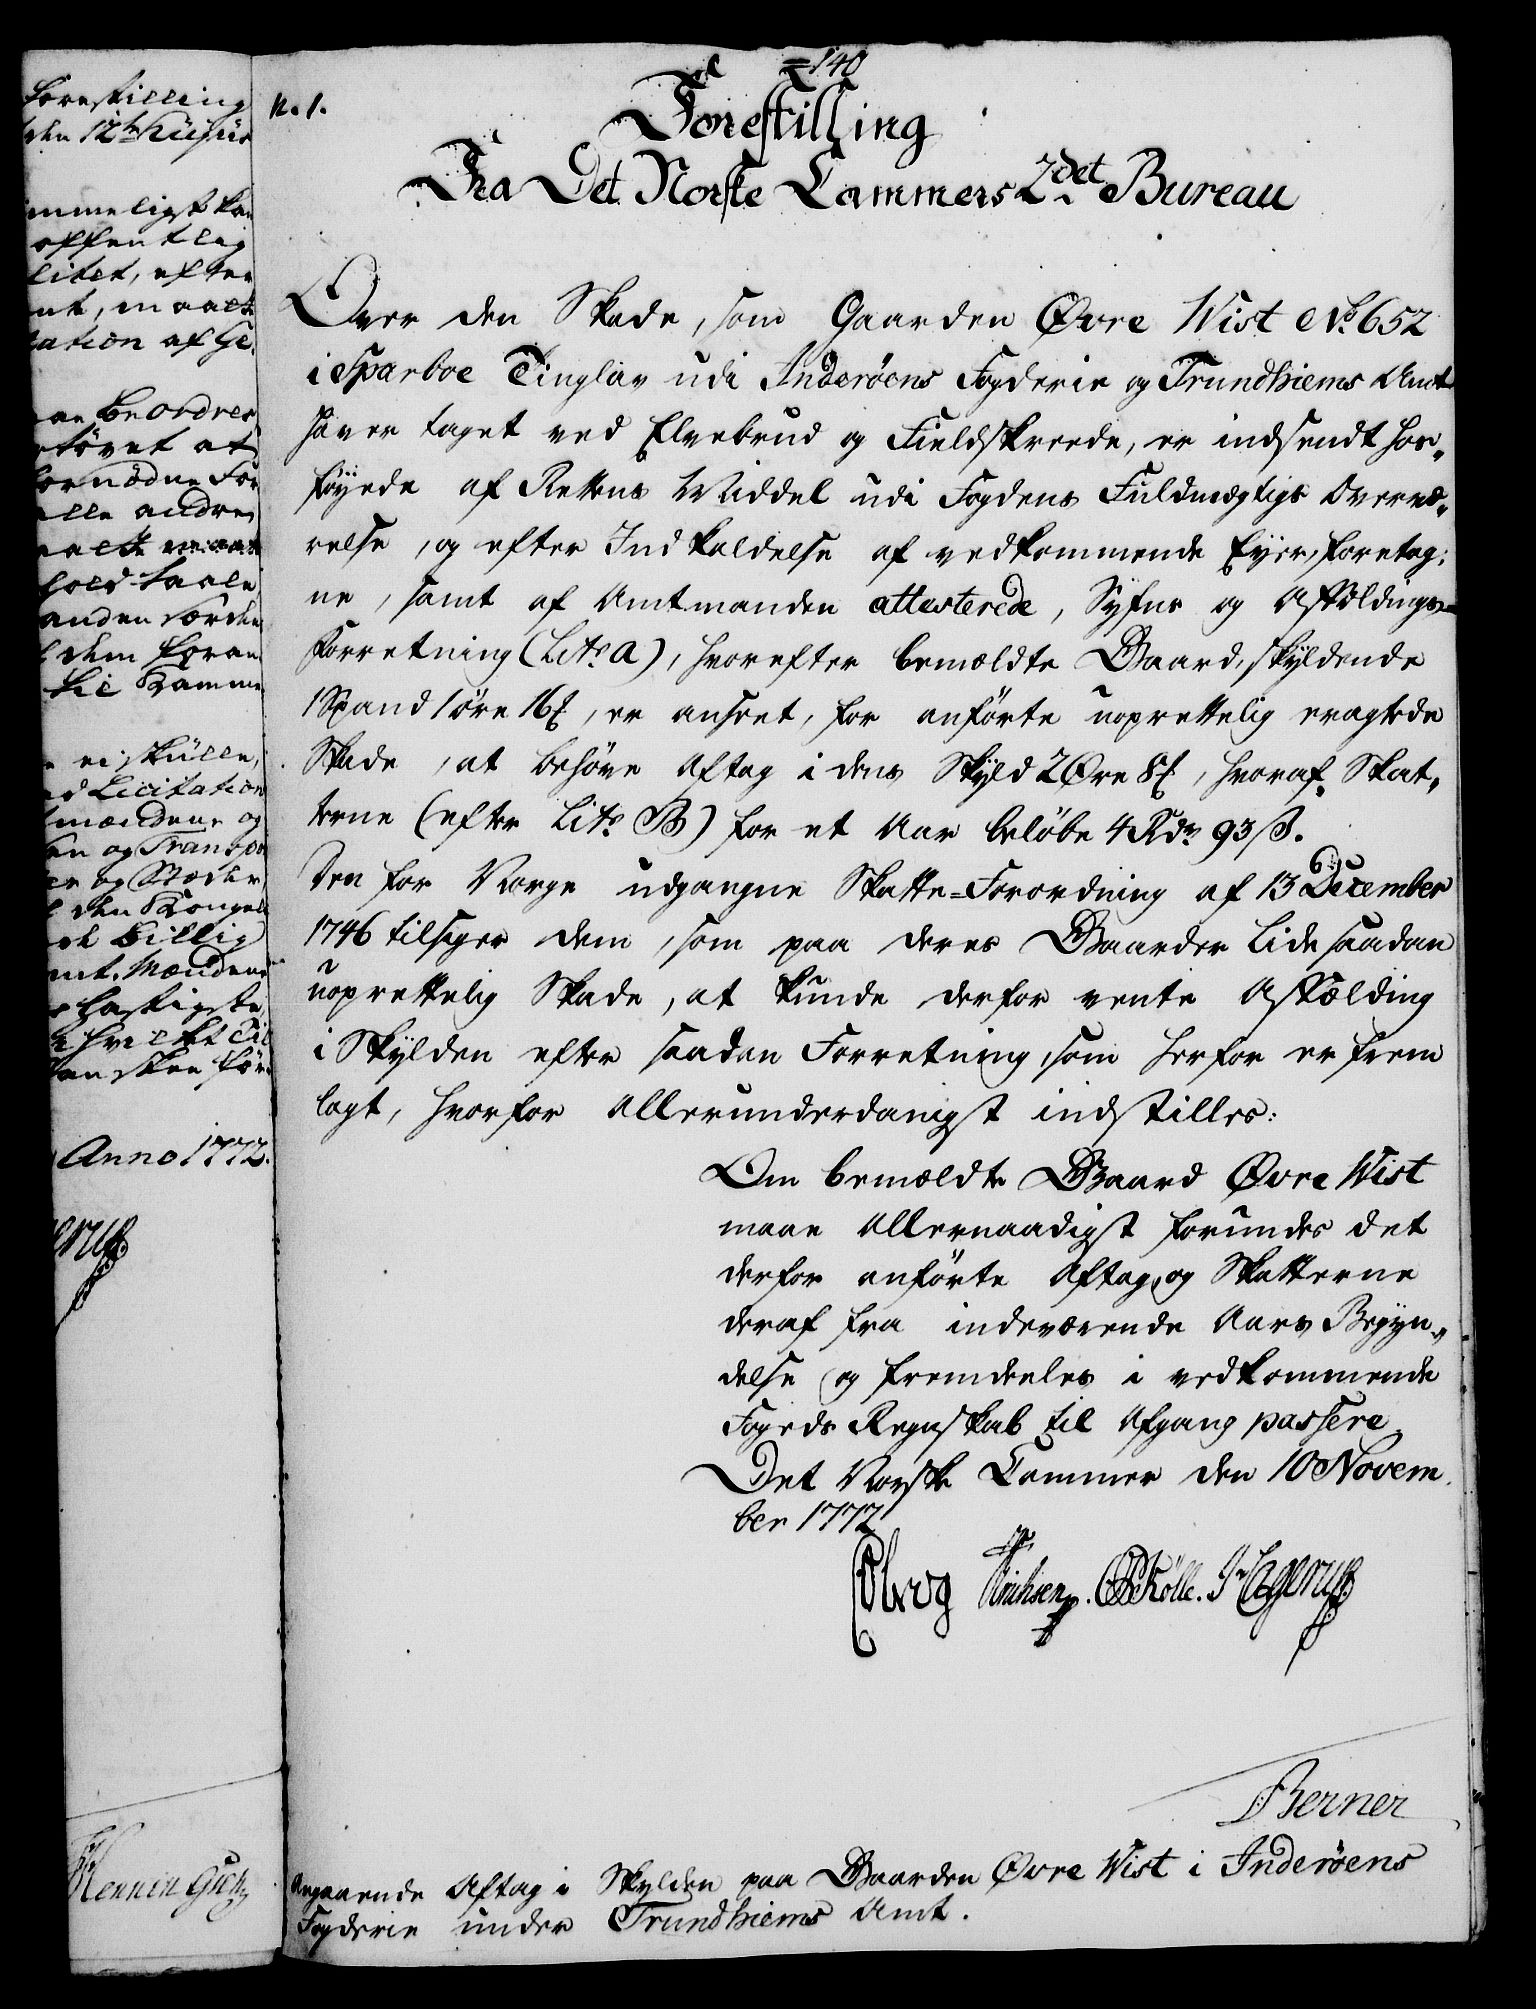 =140
n. 1.
Forestilling
Fra Det Norske Cammers 2det Bureau
Over den Skade, som Gaarden Øvre Wist No 652
i Sparboe Tinglav udi Inderøens Fogderie og Trundhiems Amt
haver taget ved Elvebrud og Fieldskreede, er indsendt hos„
føyede af Rettens Middel udi Fogdens Fuldmægtigs Overvæ„
relse, og efter Indkaldelse af vedkommende Eyer, foretag:
ne, samt af Amtmanden attesterede, Syfns og Afføldings-
Forretning (Lit: A), hvorefter bemældte Gaard, skyldende
1 Spand 1 öre 16 , er anseet, for anførte uoprettelig eragtede
Skade, at behøve Aftag i dens Skyld 2 Øre 8 , hvoraf Skat„
terne (efter Lit: B) for et Aar beløbe 4 Rdr 93 ß.
Den for Norge udgangne Skatte=Forordning af 13 December
1746 tilsiger dem, som paa deres Gaarder lide saadan
uoprettelig Skade, at kunde derfor vente Affælding
i Skylden efter saadan Forretning, som herfor er frem
lagt, hvorfor allerunderdanigst indstilles:
Om bemældte Gaard Øvre Wist
maae allernaadigst forundes det
derfor anførte Aftag, og Skatterne
deraf fra indeværende Aars Begyn„
delse og fremdeeles i vedkommende
Fogeds Regnskab til Afgang passere.
Det Norske Cammer den 10 Novem
ber 1772
Erichsen. Kölle. Hagerup
Berner
Angaaende Aftag i Skylden paa Gaarden Øvre Wist i Inderøens
Fogderie under Trundhiems Amt.
forestilling
den 12te
offentlig
litet, efter
nt, maatte
tation af Ge.
beordres
at
fornødne For
alle andre
ei skulle,
Licitation
mændene og
en og Transpor
er og Stæder
den Kongel
billig
mt. Mændene
hastigste
Anno 1772.